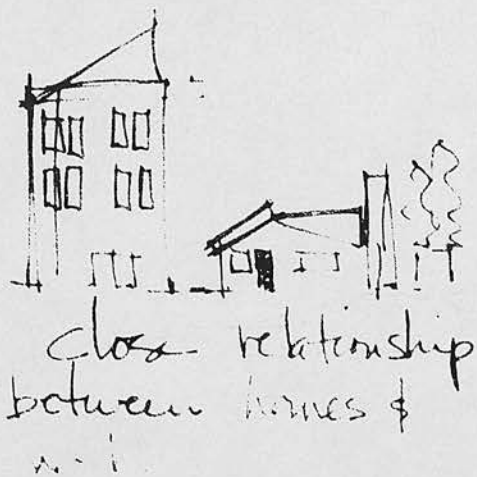 close relationship
between homes &